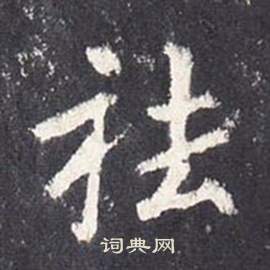 祛
词典网